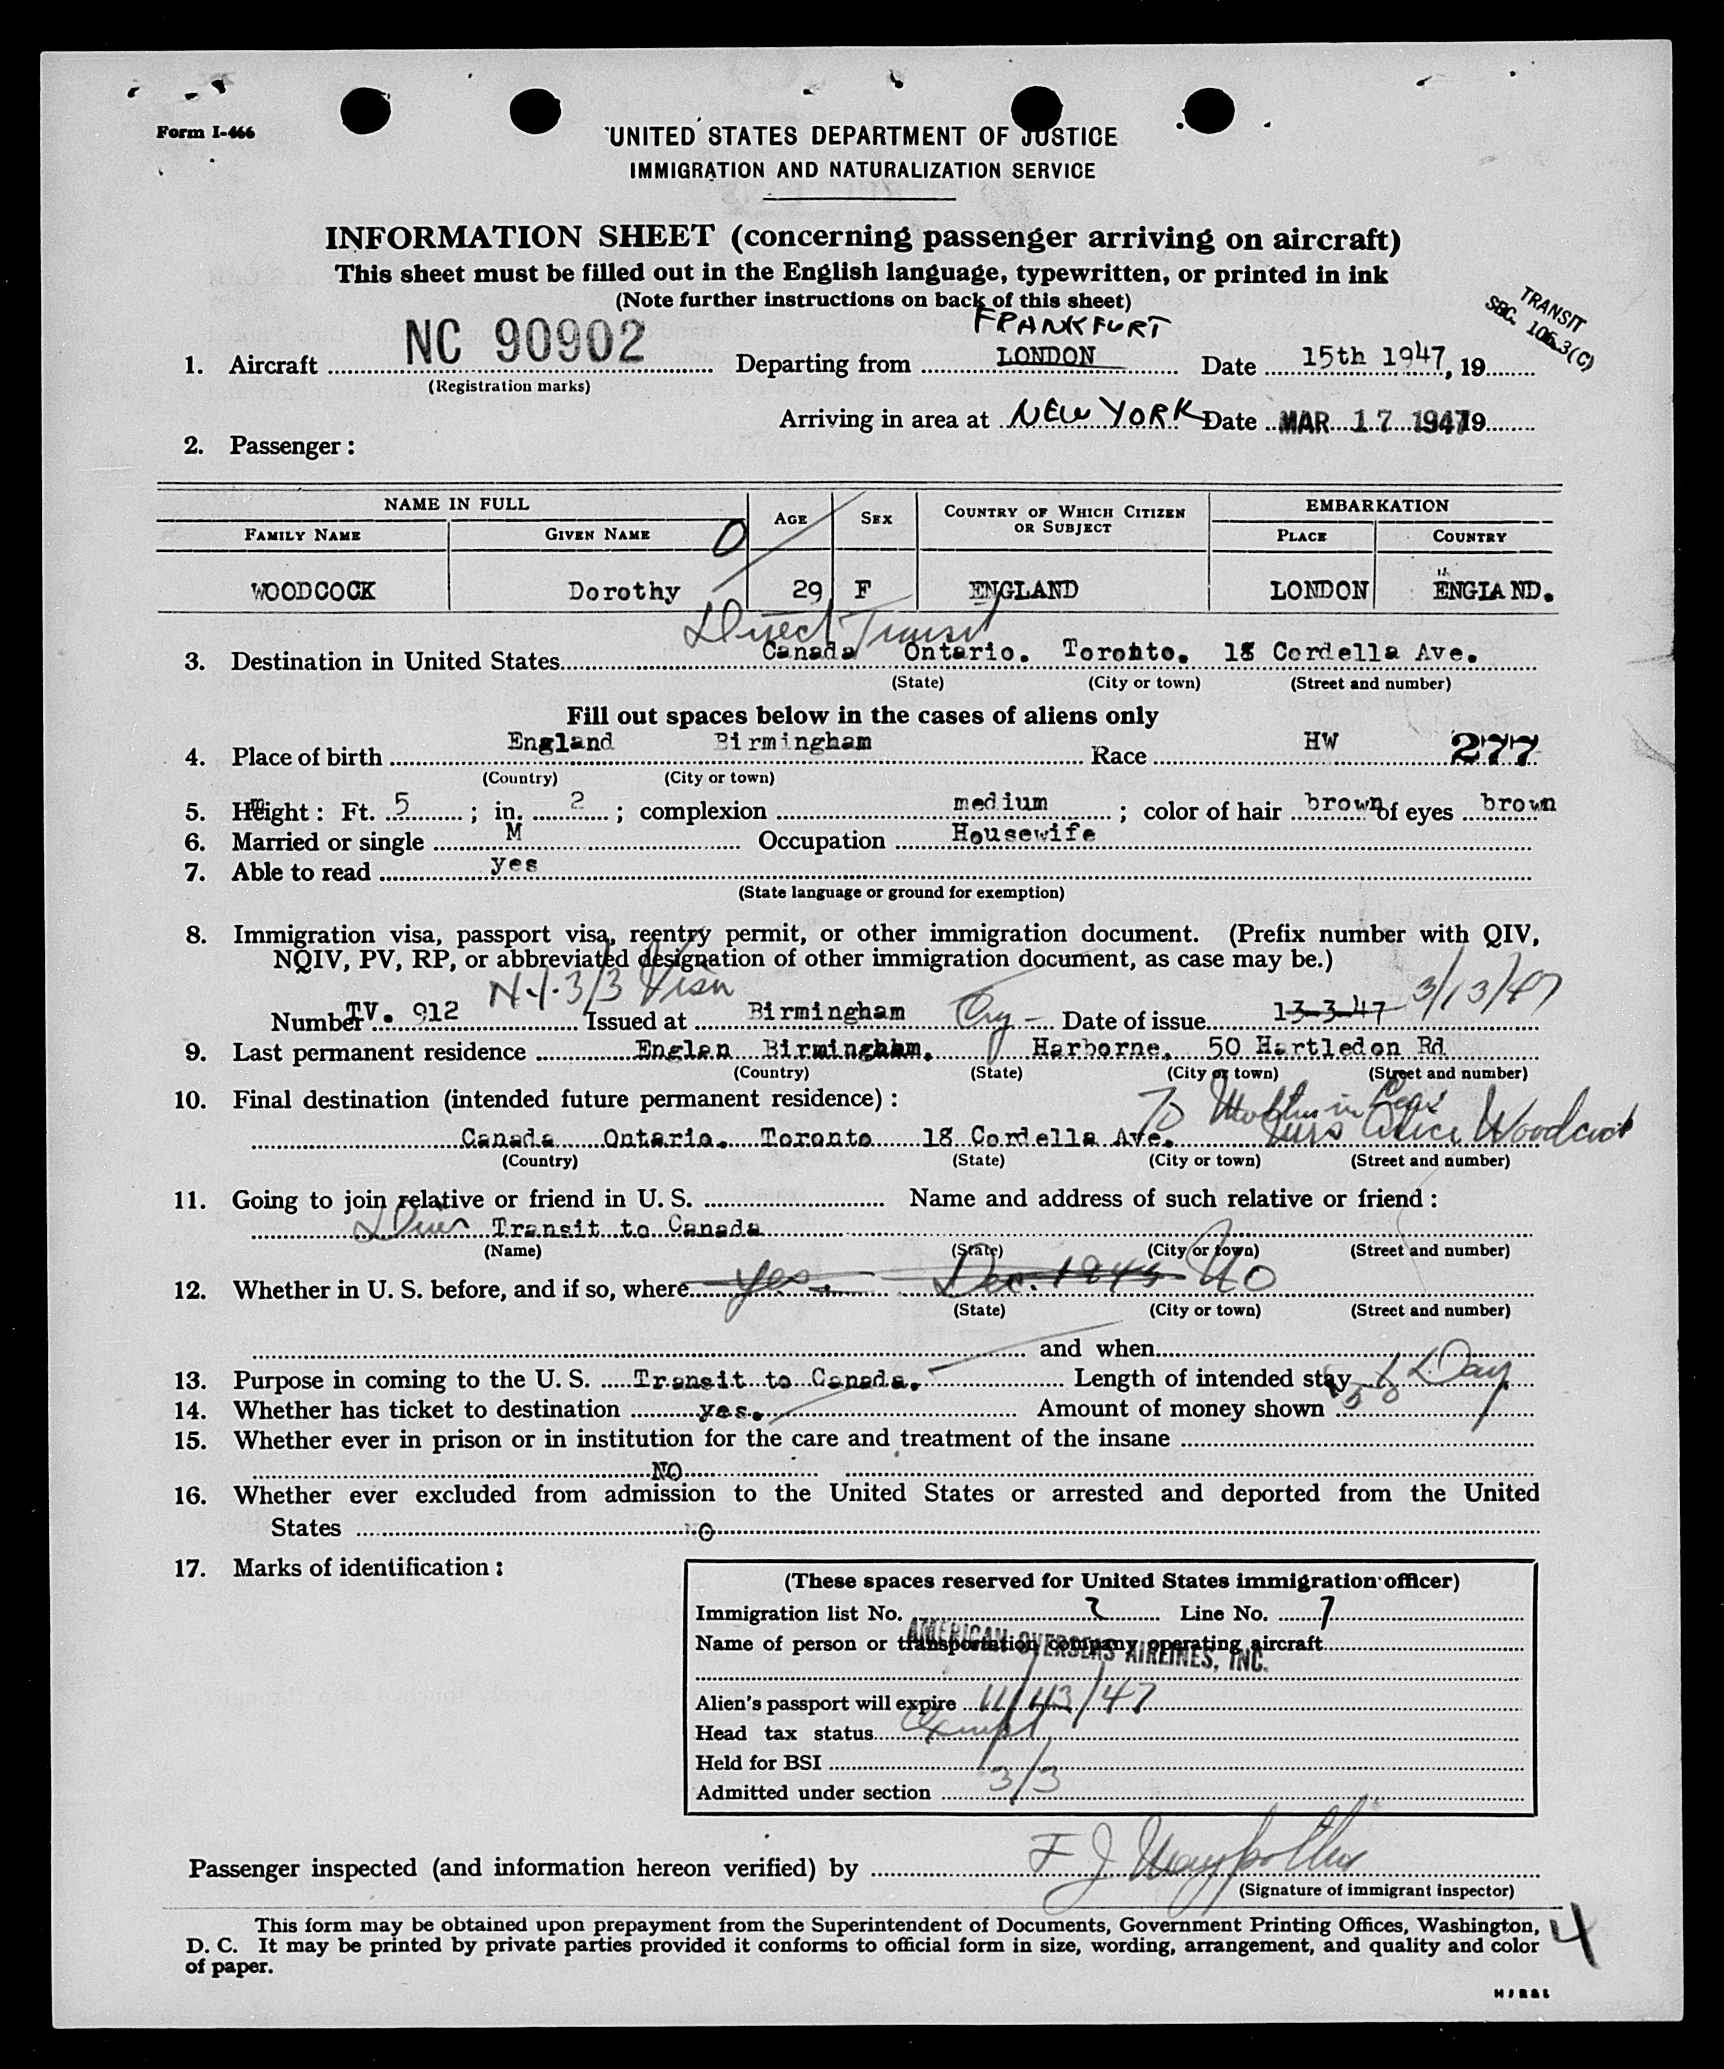 Form I-466
UNITED STATES DEPARTMENT OF JUSTICE
IMMIGRATION AND NATURALIZATION SERVICE
INFORMATION SHEET (concerning passenger arriving on aircraft)
This sheet must be filled out in the English language, typewritten, or printed in ink
(Note further instructions on back of this sheet)
TRANSIT
SEC. 106.3(C)
FRANKFURT
1. Aircraft NC 90902 Departing from LONDON Date 15th 1947, 19
(Registration marks)
Arriving in area at NEW YORK Date MAR 17 1947 19
2. Passenger:
NAME IN FULL AGE SEX COUNTRY OF WHICH CITIZEN OR SUBJECT EMBARKATION
FAMILY NAME GIVEN NAME PLACE COUNTRY
0
WOODCOCK Dorothy 29 F ENGLAND LONDON ENGLAND.
Direct Transit
3. Destination in United States Canada Ontario. Toronto. 18 Cordella Ave.
(State) (City or town) (Street and number)
Fill out spaces below in the cases of aliens only
4. Place of birth England Birmingham Race HW 277
(Country) (City or town)
5. Height: Ft. 5; in. 2; complexion medium; color of hair brown of eyes brown
6. Married or single M Occupation Housewife
7. Able to read yes
(State language or ground for exemption)
8. Immigration visa, passport visa, reentry permit, or other immigration document. (Prefix number with QIV,
NQIV, PV, RP, or abbreviated designation of other immigration document, as case may be.)
3/3 Visa
Number TV. 912 Issued at Birmingham Eng – Date of issue 13-3-47 3/13/47
9. Last permanent residence Englan Birmingham. Harborne. 50 Hartledon Rd
(Country) (State) (City or town) (Street and number)
10. Final destination (intended future permanent residence):
To Mother in Law
Canada Ontario. Toronto 18 Cordella Ave. Mrs Alice Woodcock
(Country) (State) (City or town) (Street and number)
11. Going to join relative or friend in U. S. Name and address of such relative or friend:
Transit to Canada
(Name) (State) (City or town) (Street and number)
12. Whether in U. S. before, and if so, where yes. Dec. 1945 No
(State) (City or town) (Street and number)
and when
13. Purpose in coming to the U. S. Transit to Canada. Length of intended stay 1 Day
14. Whether has ticket to destination yes. Amount of money shown
15. Whether ever in prison or in institution for the care and treatment of the insane
NO
16. Whether ever excluded from admission to the United States or arrested and deported from the United
States no
17. Marks of identification:
(These spaces reserved for United States immigration officer)
Immigration list No. 2 Line No. 7
Name of person or transportation company operating aircraft
AMERICAN OVERSEAS AIRLINES, INC.
Alien's passport will expire 11/13/47
Head tax status Exempt
Held for BSI
Admitted under section 3/3
Passenger inspected (and information hereon verified) by F J
(Signature of immigrant inspector)
This form may be obtained upon prepayment from the Superintendent of Documents, Government Printing Offices, Washington,
D. C. It may be printed by private parties provided it conforms to official form in size, wording, arrangement, and quality and color
of paper.
4